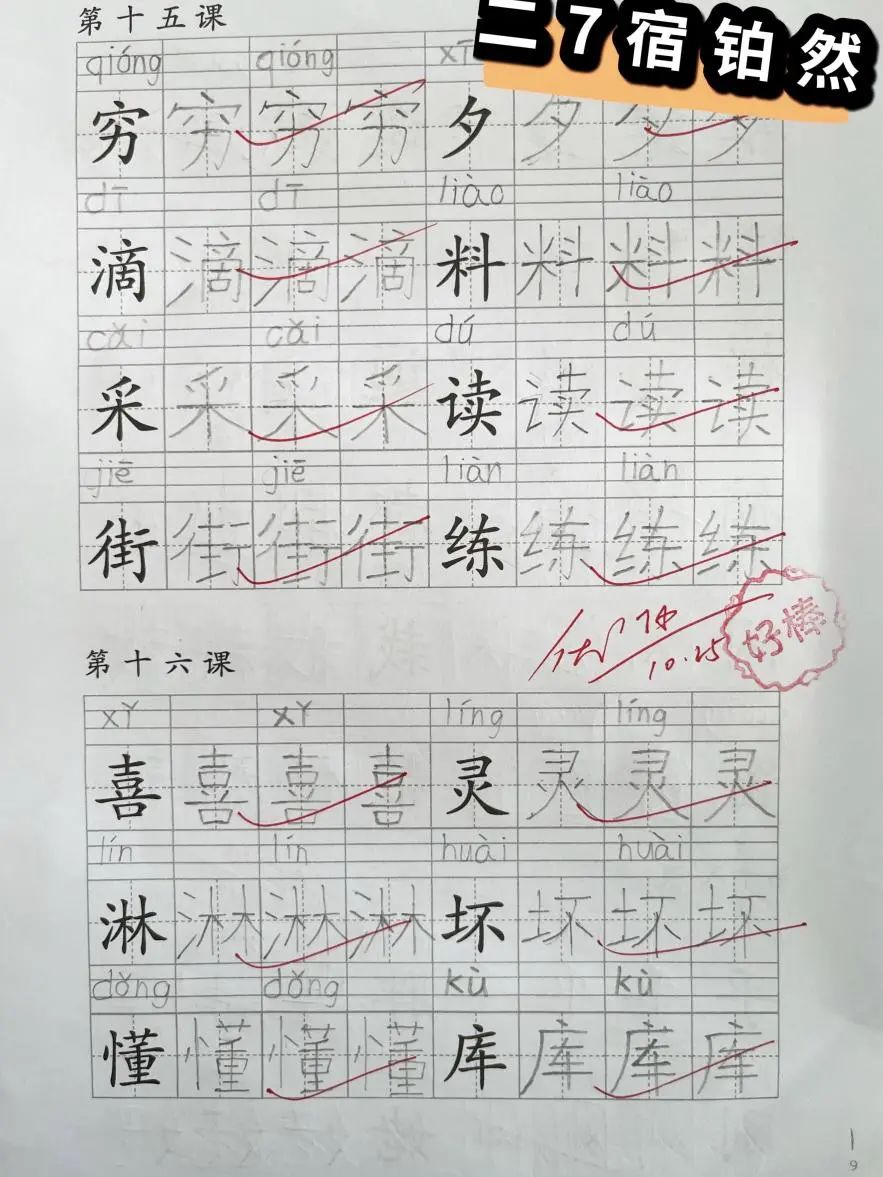 第十五课
二7宿铂然
qióng qióng xī
穷 穷 穷 穷 夕 夕 夕 夕
dī dī liào liào
滴 滴 滴 滴 料 料 料 料
cǎi cǎi dú dú
采 采 采 采 读 读 读 读
jiē jiē liàn liàn
街 街 街 街 练 练 练 练
10.25
好棒
第十六课
xǐ xǐ líng líng
喜 喜 喜 喜 灵 灵 灵 灵
lín lín huài huài
淋 淋 淋 淋 坏 坏 坏 坏
dǒng dǒng kù kù
懂 懂 懂 懂 库 库 库 库
9